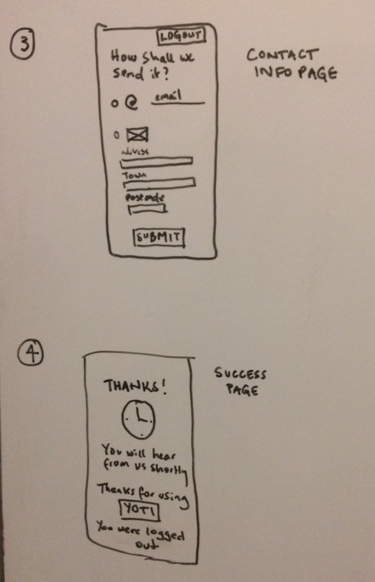 3
LOGOUT
How shall we
send it?
@ email
Address
Town
Postcode
SUBMIT
CONTACT
INFO PAGE
4
THANKS!
You will hear
from us shortly
Thanks for using
YOTI
You were logged
out
SUCCESS
PAGE